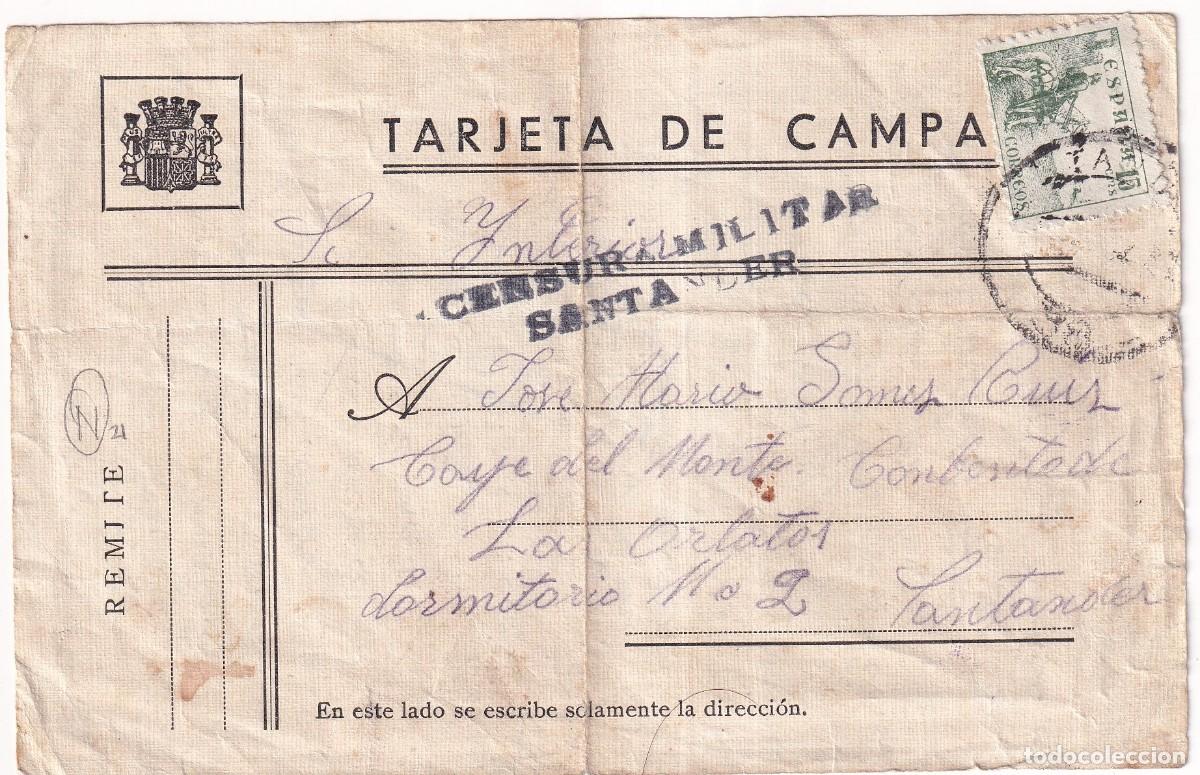 TARJETA DE CAMPA
ESPAÑA
CORREOS
15
Se Ynterior
CENSURA MILITAR
SANTANDER
A Jose Mario Gomez Ruiz
Caye del Monte Conbentode
La Orlatos
dormitorio No 2 Santander
REMITE
En este lado se escribe solamente la dirección.
todocoleccion